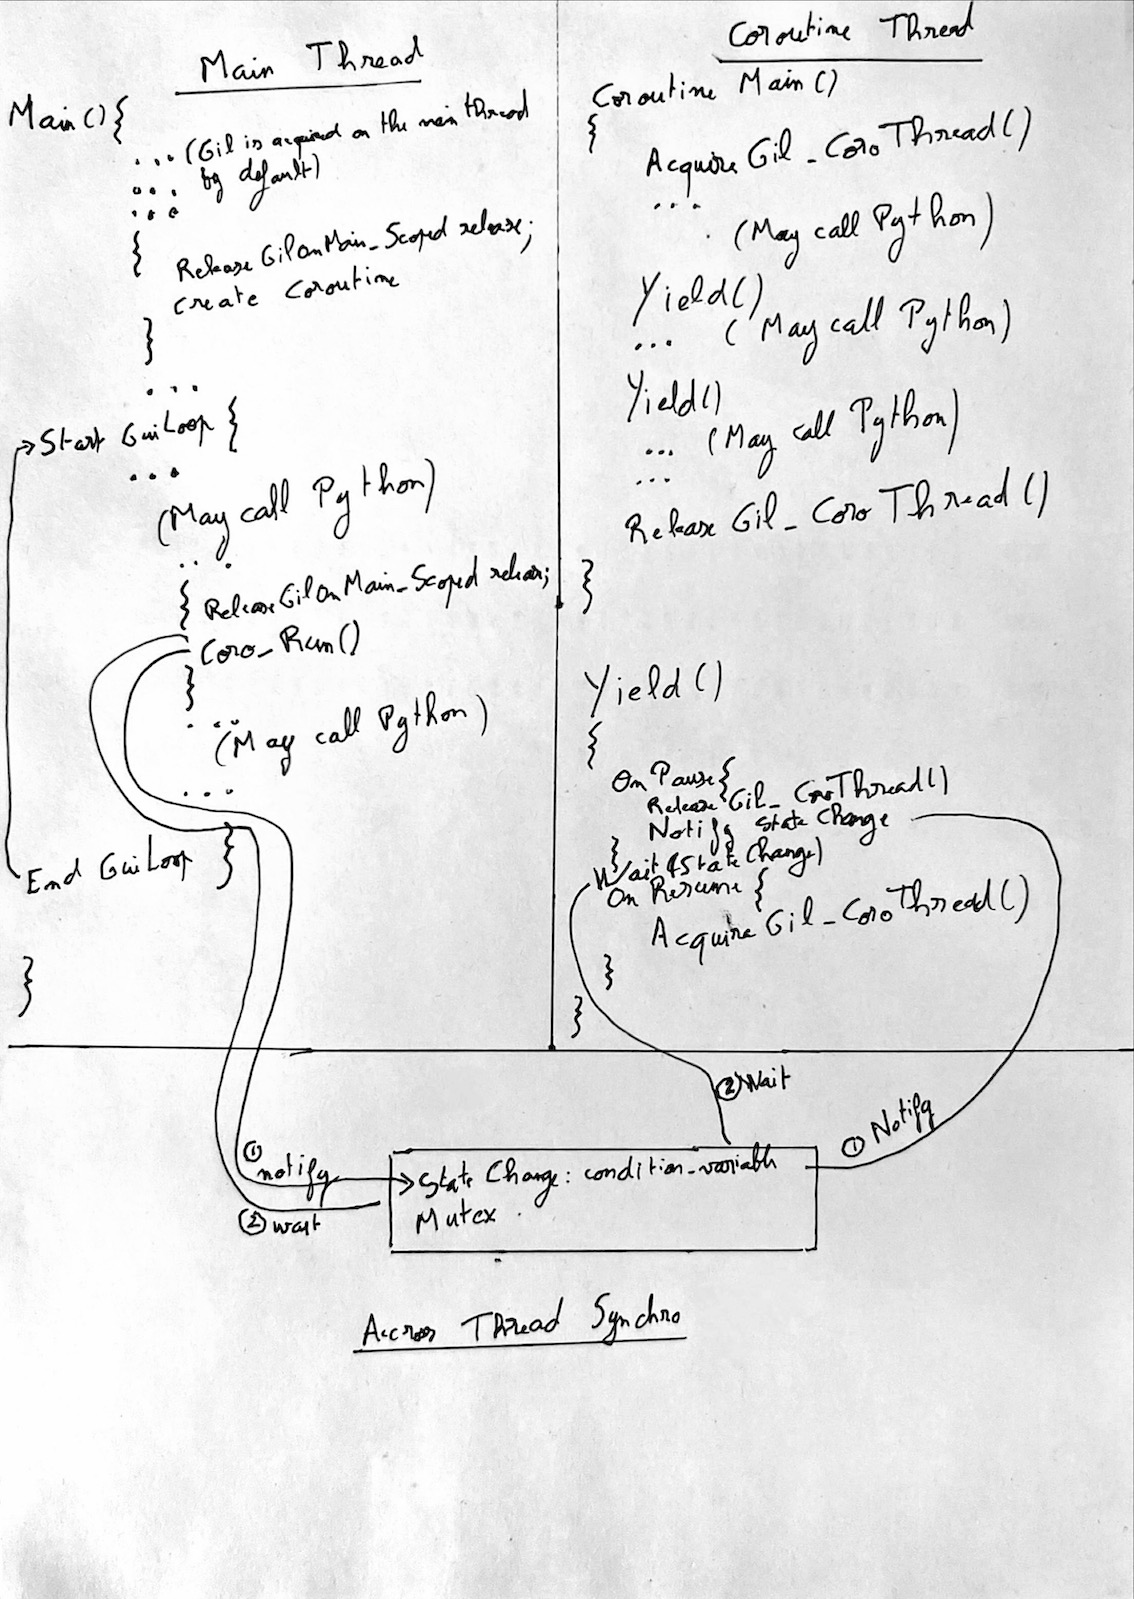 Main Thread
Main() {
... (Gil is acquired on the main thread
... by default)
...
{ Release GilOnMain_Scoped release;
create Coroutine
}
...
→ Start GuiLoop {
...
(May call Python)
...
{ Release GilOnMain_Scoped release;
Coro_Run()
}
...
(May call Python)
...
End GuiLoop }
}
Coroutine Thread
Coroutine Main()
{
Acquire Gil_CoroThread()
...
. (May call Python)
Yield()
... (May call Python)
Yield()
... (May call Python)
...
Release Gil_CoroThread()
}
Yield()
{
On Pause {
Release Gil_CoroThread()
Notify State Change
}
Wait (State Change)
On Resume {
Acquire Gil_CoroThread()
}
}
② Wait
① Notify
① notify
② wait
State Change: condition_variable
Mutex
Accross Thread Synchro